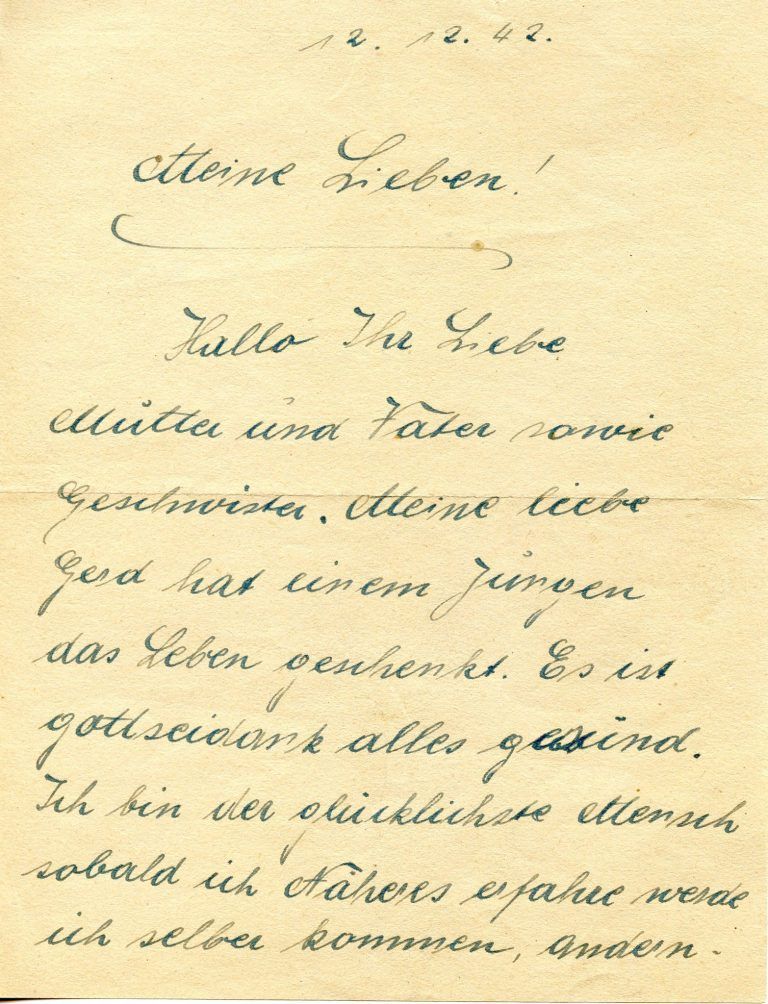 12. 12. 42.
Meine Lieben!
Hallo Ihr Liebe
Mutter und Vater sowie
Geschwister. Meine liebe
Gerd hat einem Jungen
das Leben geschenkt. Es ist
gottseidank alles gesund.
Ich bin der glücklichste Mensch
sobald ich Näheres erfahre werde
ich selber kommen, andern-